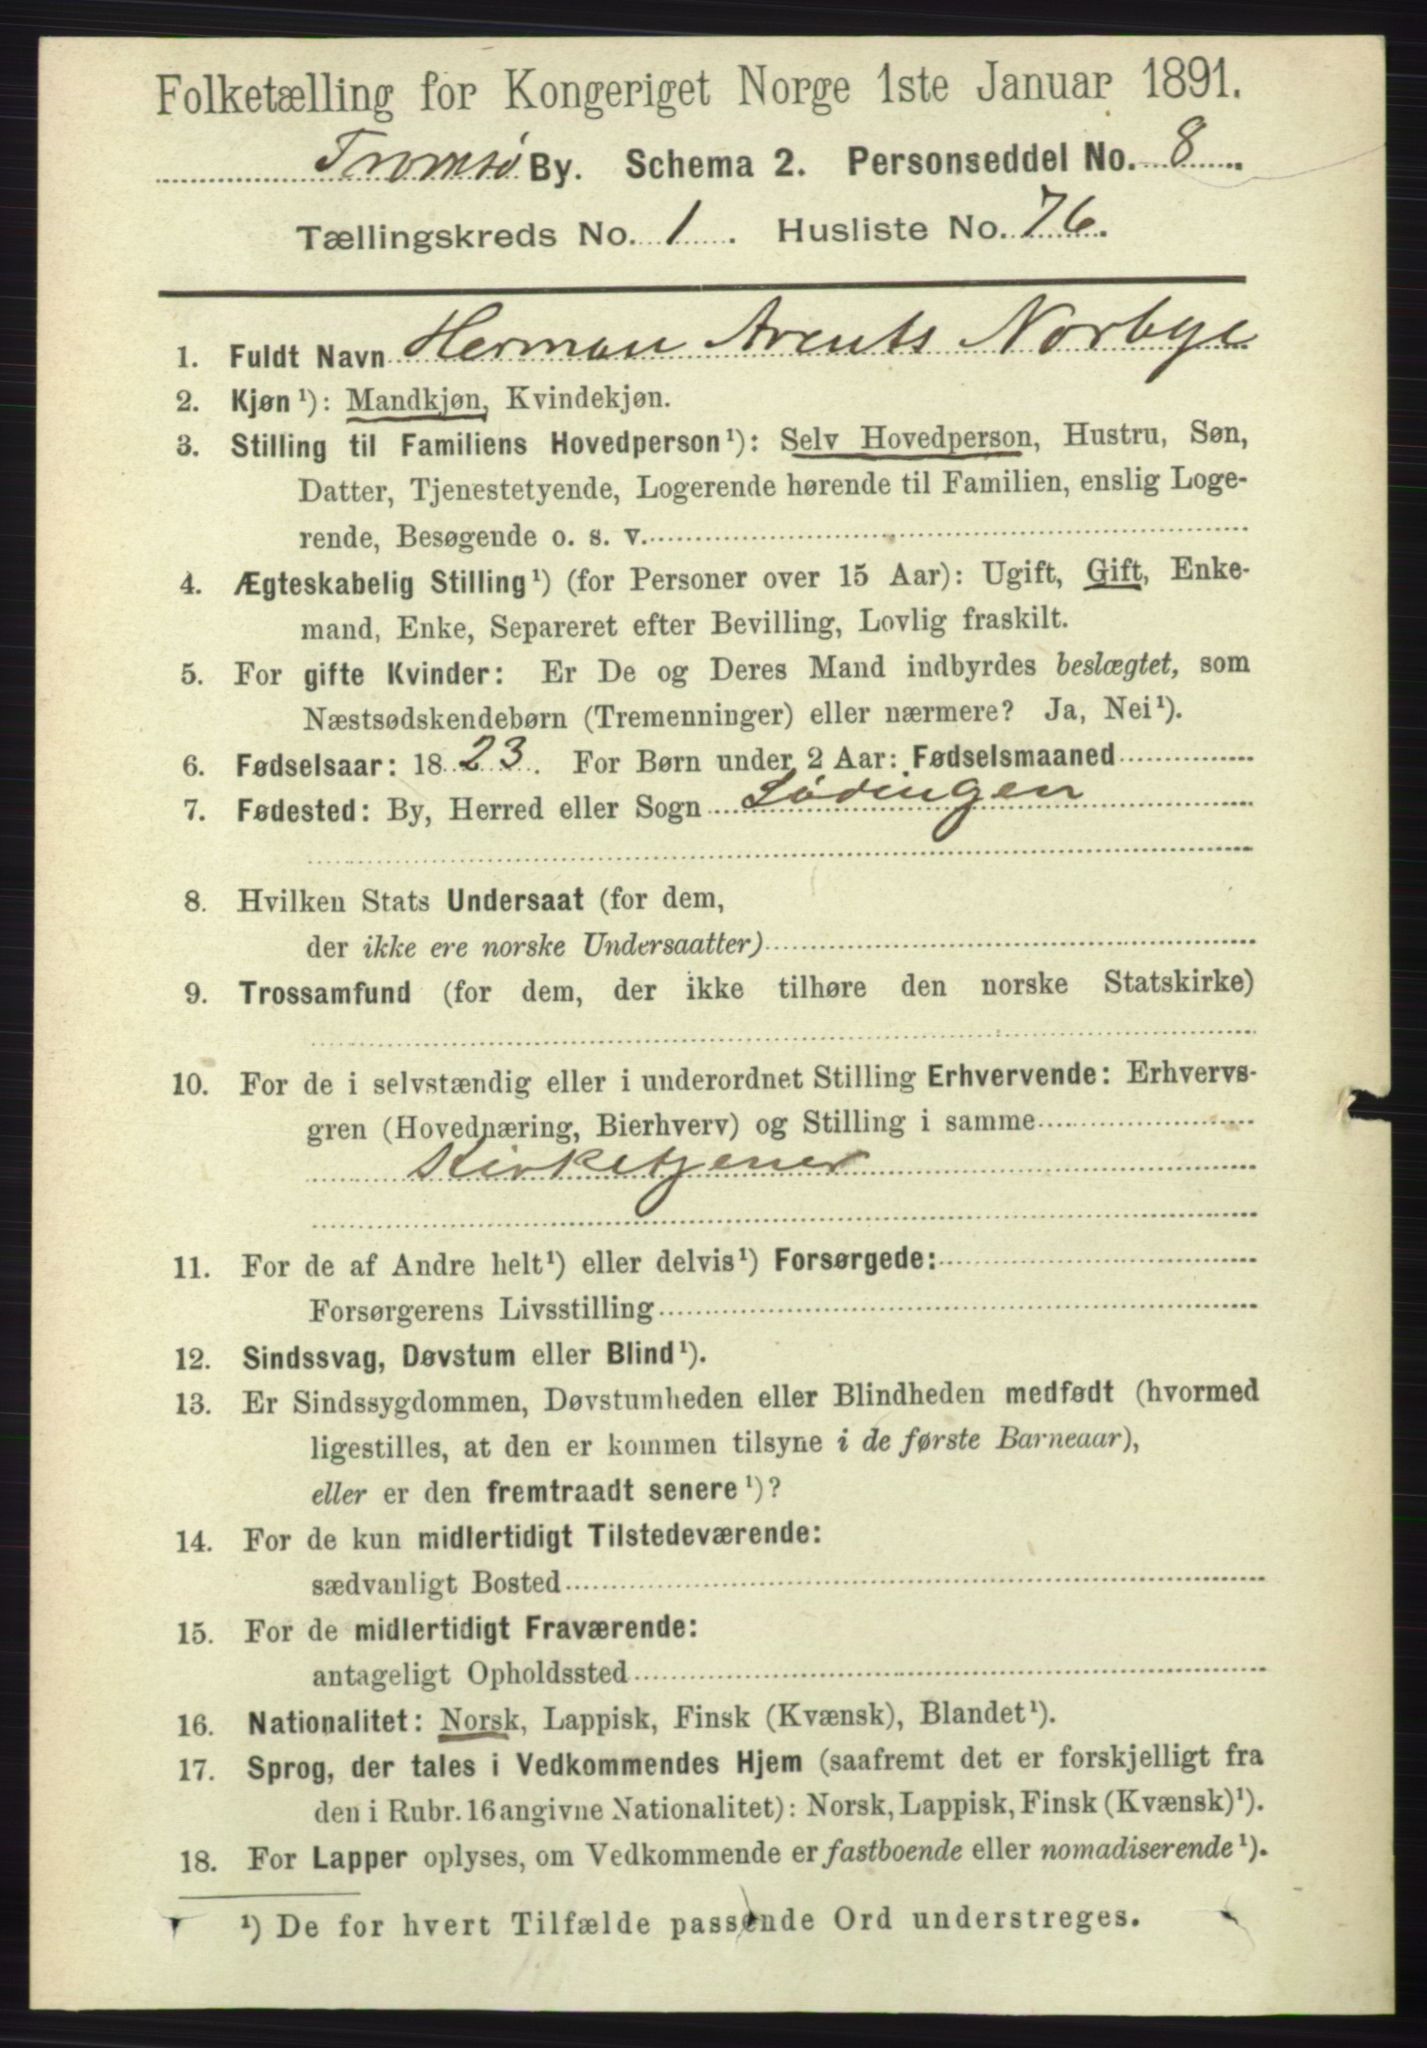 Folketælling for Kongeriget Norge 1ste Januar 1891.
Tromsø By. Schema 2. Personseddel No. 8
Tællingskreds No. 1. Husliste No. 76.
1. Fuldt Navn Herman Arents Norbye
2. Kjøn¹): Mandkjøn, Kvindekjøn.
3. Stilling til Familiens Hovedperson¹): Selv Hovedperson, Hustru, Søn,
Datter, Tjenestetyende, Logerende hørende til Familien, enslig Loge-
rende, Besøgende o. s. v.
4. Ægteskabelig Stilling¹) (for Personer over 15 Aar): Ugift, Gift, Enke-
mand, Enke, Separeret efter Bevilling, Lovlig fraskilt.
5. For gifte Kvinder: Er De og Deres Mand indbyrdes beslægtet, som
Næstsødskendebørn (Tremenninger) eller nærmere? Ja, Nei¹).
6. Fødselsaar: 1823. For Børn under 2 Aar: Fødselsmaaned
7. Fødested: By, Herred eller Sogn Lødingen
8. Hvilken Stats Undersaat (for dem,
der ikke ere norske Undersaatter)
9. Trossamfund (for dem, der ikke tilhøre den norske Statskirke)
10. For de i selvstændig eller i underordnet Stilling Erhvervende: Erhvervs-
gren (Hovednæring, Bierhverv) og Stilling i samme
Kirketjener
11. For de af Andre helt¹) eller delvis¹) Forsørgede:
Forsørgerens Livsstilling
12. Sindssvag, Døvstum eller Blind¹).
13. Er Sindssygdommen, Døvstumheden eller Blindheden medfødt (hvormed
ligestilles, at den er kommen tilsyne i de første Barneaar),
eller er den fremtraadt senere¹)?
14. For de kun midlertidigt Tilstedeværende:
sædvanligt Bosted
15. For de midlertidigt Fraværende:
antageligt Opholdssted
16. Nationalitet: Norsk, Lappisk, Finsk (Kvænsk), Blandet¹).
17. Sprog, der tales i Vedkommendes Hjem (saafremt det er forskjelligt fra
den i Rubr. 16 angivne Nationalitet): Norsk, Lappisk, Finsk (Kvænsk)¹).
18. For Lapper oplyses, om Vedkommende er fastboende eller nomadiserende¹).
¹) De for hvert Tilfælde passende Ord understreges.